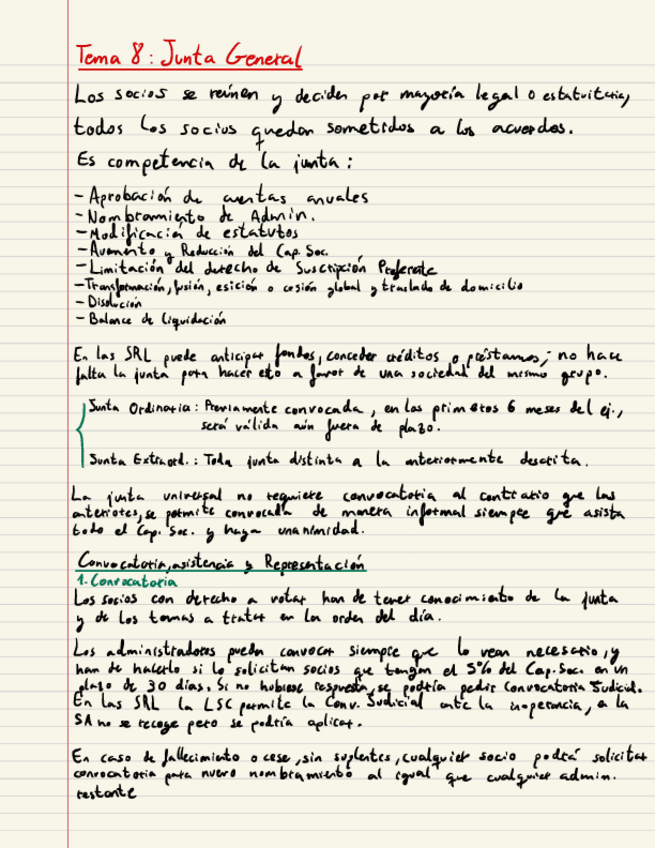 Tema 8: Junta General
Los socios se reúnen y deciden por mayoría legal o estatutaria,
todos los socios quedan sometidos a los acuerdos.
Es competencia de la junta:
- Aprobación de cuentas anuales
- Nombramiento de Admin.
- Modificación de estatutos
- Aumento y Reducción del Cap. Soc.
- Limitación del derecho de Suscripción Preferente
- Transformación, fusión, esición o cesión global y traslado de domicilio
- Disolución
- Balance de Liquidación
En las SRL puede anticipar fondos, conceder créditos o préstamos; no hace
falta la junta para hacer esto a favor de una sociedad del mismo grupo.
Junta Ordinaria: Previamente convocada, en los primeros 6 meses del ej.,
será válida aún fuera de plazo.
Junta Extraord.: Toda junta distinta a la anteriormente descrita.
La junta universal no requiere convocatoria al contrario que las
anteriores, se permite convocada de manera informal siempre que asista
todo el Cap. Soc. y haya unanimidad.
Convocatoria, asistencia y Representación
1. Convocatoria
Los socios con derecho a votar han de tener conocimiento de la junta
y de los temas a tratar en la orden del día.
Los administradores pueden convocar siempre que lo vean necesario, y
han de hacerlo si lo solicitan socios que tengan el 5% del Cap. Soc. en un
plazo de 30 días. Si no hubiese respuesta, se podría pedir Convocatoria Judicial.
En las SRL la LSC permite la Conv. Judicial ante la inoperancia, en la
SA no se recoge pero se podría aplicar.
En caso de fallecimiento o cese, sin suplentes, cualquier socio podrá solicitar
convocatoria para nuevo nombramiento al igual que cualquier admin.
restante